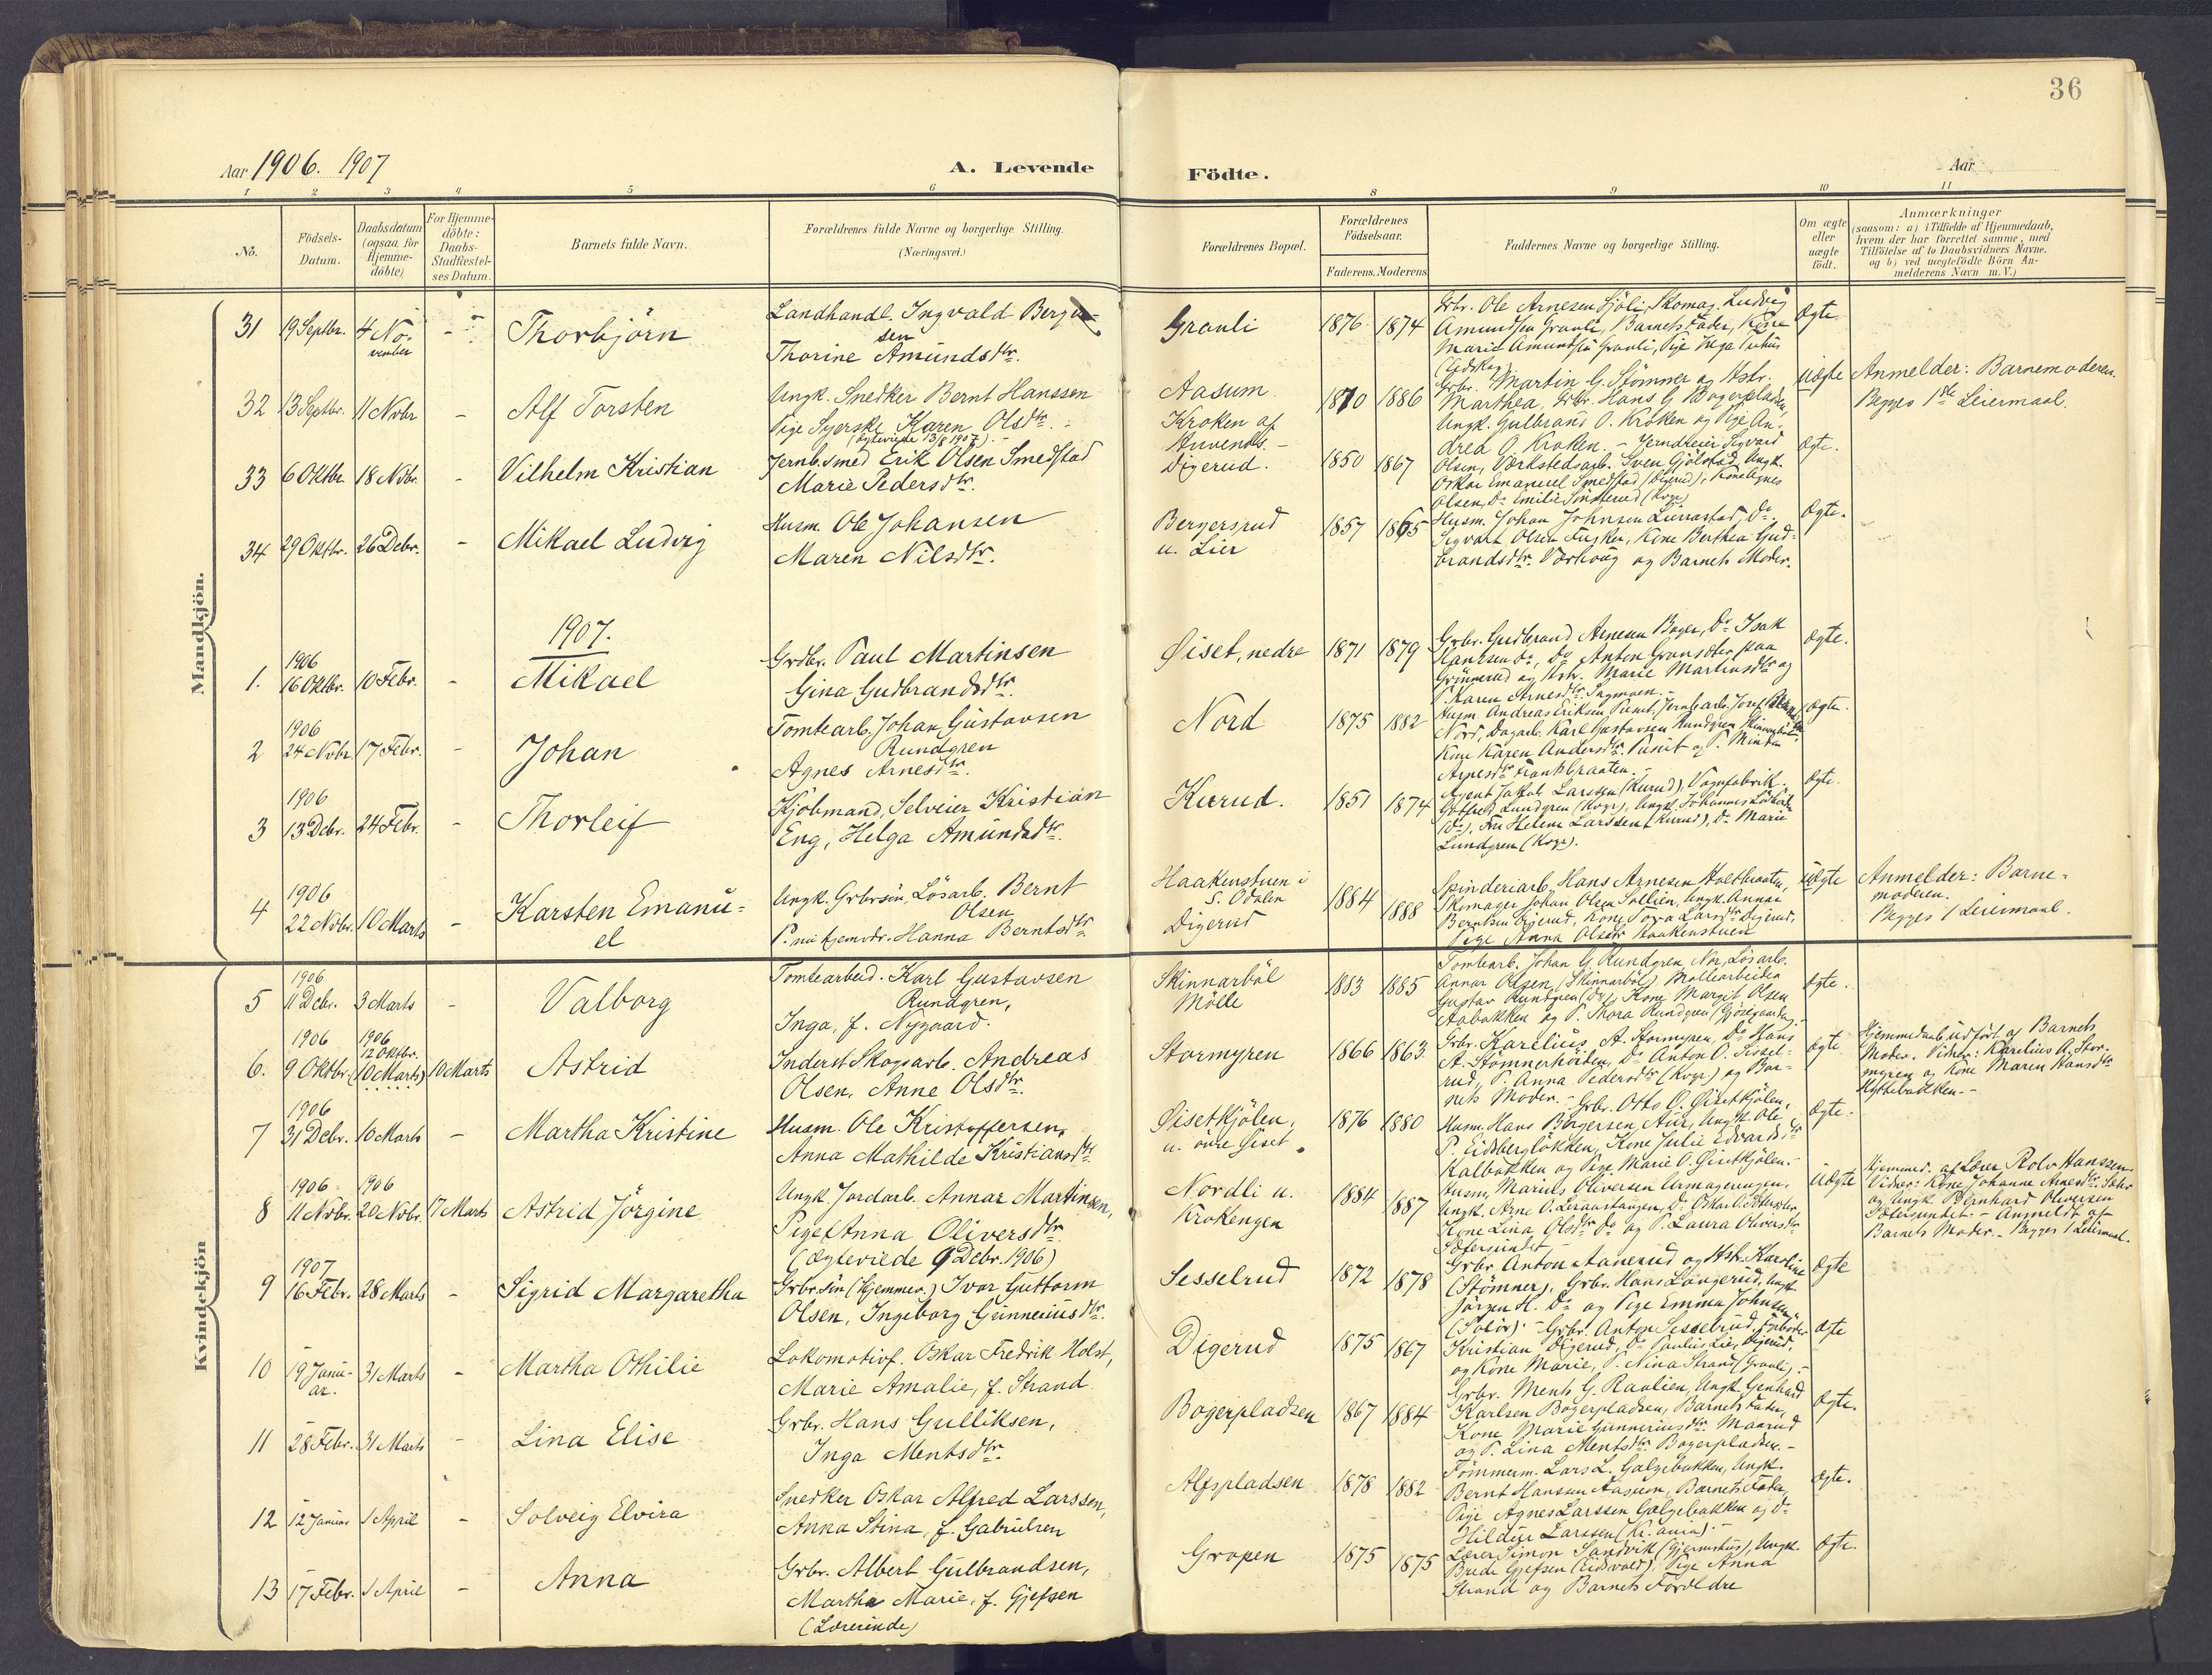 36
Aar 1906. 1907
A. Levende
Födte.
Aar
1 2 3 4 5 6 8 9 10 11
No.
Födsels-
Datum.
Daabsdatum
(ogsaa for
Hjemme-
döbte)
For Hjemme-
döbte:
Daabs-
Stadfæstel-
ses Datum.
Barnets fulde Navn.
Forældrenes fulde Navne og borgerlige Stilling.
(Næringsvei.)
Forældrenes Bopæl.
Forældrenes
Födselsaar.
Faderens. Moderens
Faddernes Navne og borgerlige Stilling.
Om ægte
eller
uægte
födt.
Anmærkninger
(saasom: a) i Tilfælde af Hjemmedaab,
hvem der har forrettet samme, med
Tilföielse af to Daabsvidners Navne.
og b) ved uægtefödte Börn An-
melderens Navn m.V.)
Mandkjön.
31 19 Septbr. 4 No-
vember
- Thorbjörn
Landhandl. Ingvald Berger-
sen
Thorine Amundsdtr.
Grauli 1876 1874
Grbr. Ole Arnesen Sjöli, Skomag. Ludvig
Amundsen Grauli, Barnets Fader, Kone
Marie Amundsen Grauli, Pige Inga
(Eidskog)
Ægte.
32 13 Septbr. 11 Novbr - Alf Torsten
Ungk. Snedker Bernt Hanssen
Pige Syerske Karen Olsdtr.
(Ægteviede 13/8 1907). -
Aasum.
Kroken af
1870 1886
Grbr. Martin G. Stömner og Hstr.
Marthea, Grbr. Hans G Bogerpladsen,
Ungk. Gulbrand O. Kroken og Pige An-
drea O. Kroken. -
Uægte
Anmelder: Barnemoderen.
Begges 1ste Leiermaal.
33 6 Oktbr. 18 Novbr. - Vilhelm Kristian
Jernb.smed Erik Olsen Smedstad
Marie Pedersdtr.
Digerud. 1850 1867
Olsen, Værkstedsarb. Sven Gjölstad, Ungk.
Oskar Emanuel Smedstad (Digerud), Kone Agnes
Olsen, Do Emilie (Kvgr)
Ægte.
34 29 Oktbr. 26 Debr. - Mikael Ludvig
Husm. Ole Johansen
Maren Nilsdtr.
Bergersrud
u. Lier
1857 1865
Husm. Johan Johnsen Do
Sigvart Olsen Fusker, Kone Berthea Gud-
brandsdtr. Værhaug og Barnets Moder.
Ægte.
1907.
1. 1906
16 Oktbr. 10 Febr. - Mikael
Grdbr. Paul Martinsen
Gina Gudbrandsdtr.
Öiset, nedre 1871 1879
Grbr. Gudbrand Arnesen Boger, Do Isak
Hanssen Do, Do Anton paa
Grinnerud og Hstr. Marie Martinsdtr og
P. Karen Arnesdtr.
Ægte.
2 1906
24 Novbr. 17 Febr. - Johan
Tomtearb. Johan Gustavsen
Rundgren
Agnes Arnesdtr.
Nord 1875 1882
Husm. Andreas Eriksen Jernb.arb. Josef
Nord, Dagarb. Karl Gustavsen Rundgren
Kone Karen Andersdtr. og P.
Arnesdtr
Ægte.
3 1906
13 Debr. 24 Febr. - Thorleif
Kjöbmand, Selveier Kristian
Eng, Helga Amundsdtr.
Kurud. 1851 1874
Agent Jakob Larssen (Kurud), Vognfabrik.
Gotfred Lundgren (Kvgr), Ungk. Johannes
(Do), Fru Helene Larssen (Kurud), Do Marie
Lundgren (Kvgr).
Ægte.
4 1906
22 Novbr. 10 Marts - Karsten Emanu-
el
Ungk. Grbrsön, Lösarb. Bernt
Olsen
P. nu hjemvr. Hanna Berntsdtr.
Haakenstuen i
S. Odalen
Digerud
1884 1888
Spinderiarb. Hans Arnesen
Skomager Johan Olsen Sollien, Ungk. Annar
Berntsen Digerud, Kone Tova Larsdtr Digerud,
Pige Anna Olsdtr Haakenstuen
Uægte
Anmelder: Barne-
moderen.
Begges 1 Leiermaal.
Kvindekjön
5 1906
11 Debr. 3 Marts - Valborg
Tomtearbeid. Karl Gustavsen
Rundgren,
Inga, f. Nygaard.
Skinnarböl
Mölle
1883 1885
Tomtearb. Johan G. Rundgren, Nor, Lösarb.
Annar Olsen, (Skinnarböl) Möllearbeider
Gustav Rundgren (Do), Kone Margit Olsen
Aabakken og P. Thora Rundgren
Ægte.
6. 1906
9 Oktbr. 1906
12 Oktbr.
(10 Marts) 10 Marts Astrid
Inderst Skogsarb. Andreas
Olsen, Anne Olsdtr.
Stormyren 1866 1863
Grbr. Karelius A. Stormyren, Do Hans
A. Stömnerhöiden, Do Anton O. Sissel-
rud, P. Anna Pedersdtr (Kvgr) og Bar-
nets Moder. -
Ægte
Hjemmedaab udfört af Barnets
Moder. Vidner: Karelius A. Stor-
myren og Kone Maren Hansdtr
Myttebakken. -
7 1906
31 Debr. 10 Marts - Martha Kristine
Husm. Ole Kristoffersen,
Anna Mathilde Kristiansdtr.
Öisetkjölen,
u. övre Öiset.
1876 1880
Grbr. Otto O. Öisetkjölen,
Husm. Hans Börgersen, Aur, Ungk. Ole
P. Eidsberglökken, Kone Julie Edvardsdtr
Kalbakken og Pige Marie O. Öisetkjölen.
Ægte.
8 1906
11 Novbr. 1906
20 Novbr. 17 Marts Astrid Jörgine
Ungk. Jordarb. Annar Martinsen,
Pige Anna Oliversdtr.
(Ægteviede 9 Debr. 1906)
Nordli u.
Krokengen
1884 1887
Husm. Marius Oliversen
Ungk. Arne O. Do Oskar
Kone Lina Olsdtr Do og P. Laura Oliversdtr
Sætersundet
Uægte
Hjemmed. af Lærer Rolv Hanssen.
Vidner: Kone Johanne Arnesdtr
og Ungk. Bernhard Oliversen
Sætersundet. - Anmeldt af
Barnets Moder. - Begges 1 Leiermaal.
9 1907
16 Febr. 28 Marts - Sigrid Margaretha
Grbrsön (Hjemmev.) Ivar Guttorm
Olsen, Ingeborg Gunneriusdtr.
Sesselrud 1872 1878
Grbr. Anton Aanerud og Hstr. Karoline
(Stömner), Grbr. Hans Langerud, Ungk
Jörgen H. Do og Pige Emma Johnsen
(Solör). -
Ægte
10 19 Janu-
ar. 31 Marts - Martha Othilie
Lokomotivf. Oskar Fredrik Holst,
Marie Amalie, f. Strand.
Digerud 1875 1867
Grbr. Anton Sesselrud,
Kristian Digerud, Do Paulus Lier, Digerud,
og Kone Marie, P. Nina Strand (Grauli). -
Ægte
11 28 Febr. 31 Marts - Lina Elise
Grbr. Hans Gulliksen,
Inga Mentsdtr.
Bogerpladsen 1867 1884
Grbr. Ments G. Raulien, Ungk.
Karlsen Bogerpladsen, Barnets Fader,
Kone Marie Gunneriusdtr. Maarud
og P. Lina Mentsdtr. Bogerpladsen. -
Ægte.
12 12 Januar 1 April - Solveig Elvira
Snedker Oskar Alfred Larssen,
Anna Stina, f. Gabrielsen
Alfspladsen 1878 1882
Tömmerm. Lars L. Galgebakken, Ungk.
Bernt Hanssen Aasum, Barnets Fader,
Pige Agnes Larssen Galgebakken og Do
Hildur Larssen (Kr.ania). -
Ægte.
13 17 Febr. 1 April - Anna
Grbr. Albert Gulbrandsen,
Martha Marie, f. Gjefsen
(Lærerinde)
Gropen 1875 1875
Lærer Simon Sandvik (Gjermshus), Ungk.
Brede Gjefsen (Eidsvold), Pige Anna
Strand og Barnets Forældre
Ægte.